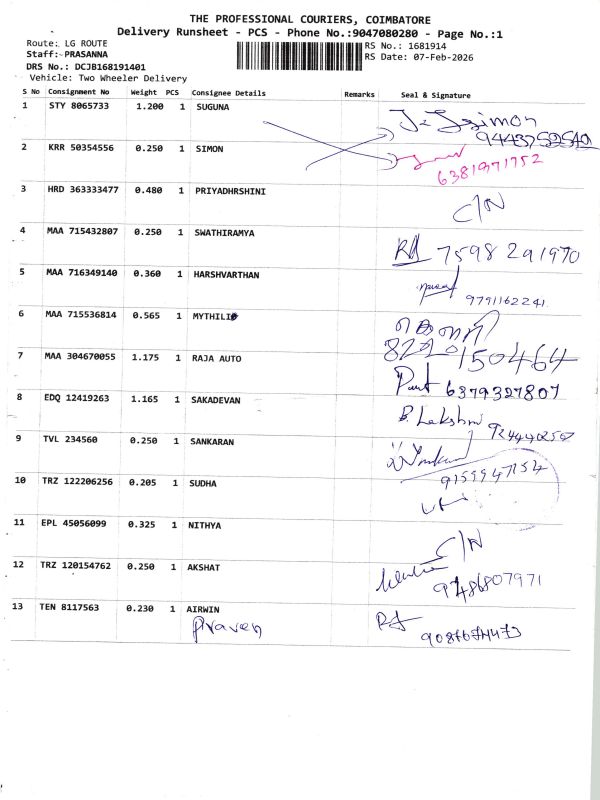 THE PROFESSIONAL COURIERS, COIMBATORE
Delivery Runsheet - PCS - Phone No.:9047080280 - Page No.:1
Route: LG ROUTE
RS No.: 1681914
Staff: PRASANNA
RS Date: 07-Feb-2026
DRS No.: DCJB168191401
Vehicle: Two Wheeler Delivery
S No Consignment No Weight PCS Consignee Details Remarks Seal & Signature
1 STY 8065733 1.200 1 SUGUNA
2 KRR 50354556 0.250 1 SIMON
6381971752
3 HRD 363333477 0.480 1 PRIYADHRSHINI C/N
4 MAA 715432807 0.250 1 SWATHIRAMYA 7598291970
5 MAA 716349140 0.360 1 HARSHVARTHAN
9791162241
6 MAA 715536814 0.565 1 MYTHILI
7 MAA 304670055 1.175 1 RAJA AUTO
6379327807
8 EDQ 12419263 1.165 1 SAKADEVAN B. Lakshmi
9 TVL 234560 0.250 1 SANKARAN
9159947154
10 TRZ 122206256 0.205 1 SUDHA
11 EPL 45056099 0.325 1 NITHYA C/N
12 TRZ 120154762 0.250 1 AKSHAT
13 TEN 8117563 0.230 1 AIRWIN
Praven